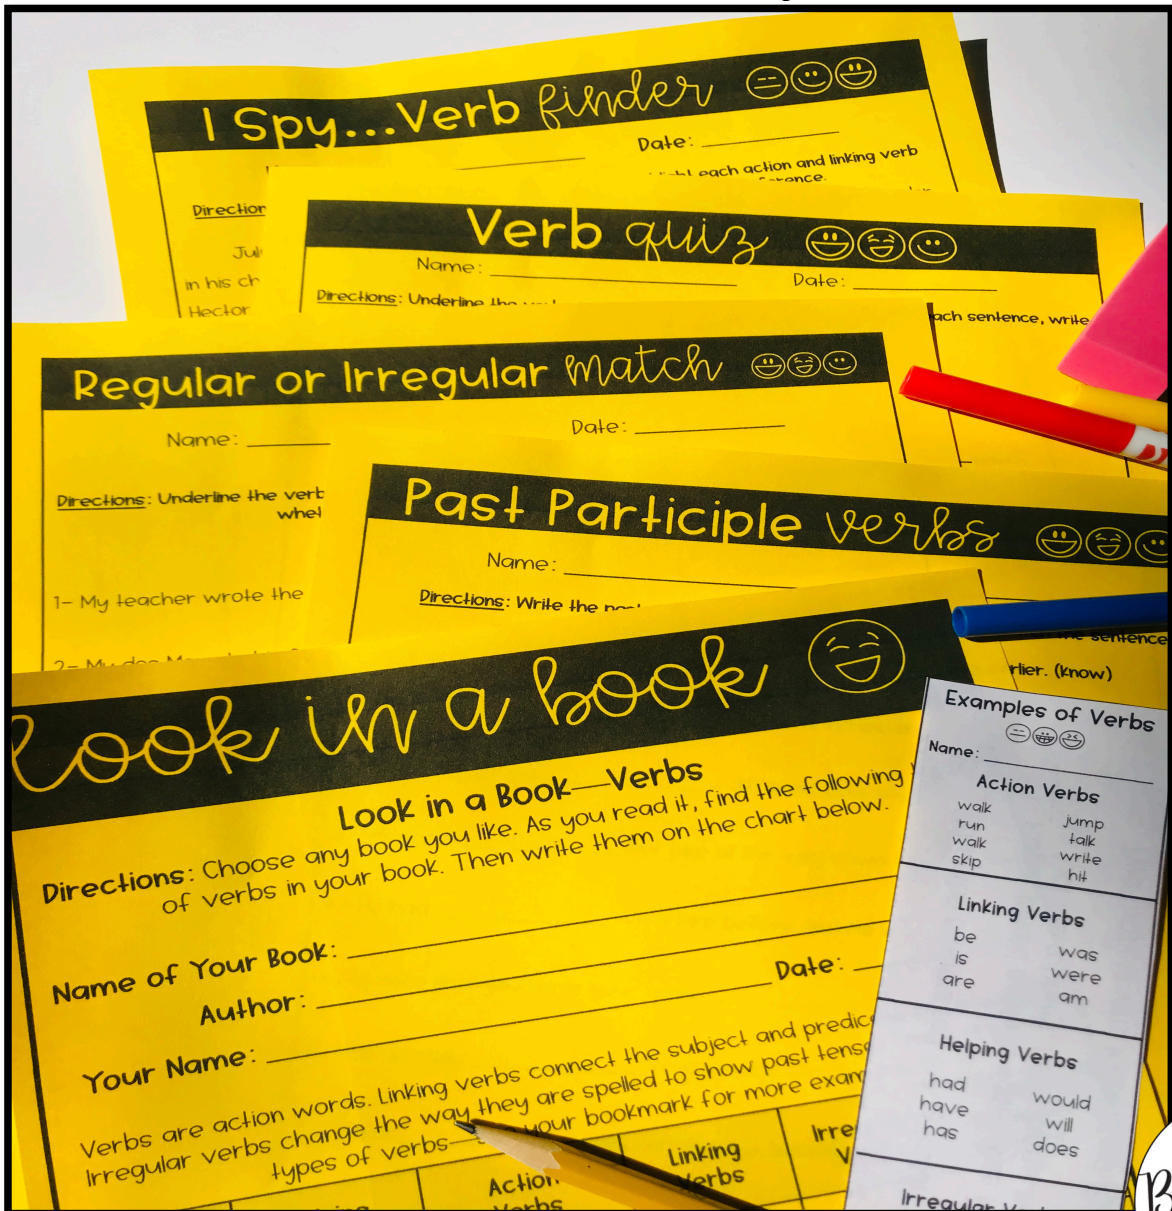 I Spy...Verb finder
Date:
each action and linking verb
Direction
in his ch
Hector
Verb quiz
Name:
Date:
Directions: Underline the
ach sentence, write
Regular or Irregular match
Name:
Date:
Directions: Underline the verb
whet
1- My teacher wrote the
Past Participle verbs
Name:
Directions: Write the
sentence
rlier. (know)
Look in a book
Look in a Book—Verbs
Directions: Choose any book you like. As you read it, find the following
of verbs in your book. Then write them on the chart below.
Name of Your Book:
Author:
Date:
Your Name:
Verbs are action words. Linking verbs connect the subject and predic
Irregular verbs change the way they are spelled to show past tens
types of verbs— your bookmark for more exam
Action
Verbs
Linking
Verbs
Irre
V
Examples of Verbs
Name:
Action Verbs
walk jump
run talk
walk write
skip hit
Linking Verbs
be was
is were
are am
Helping Verbs
had would
have will
has does
Irregular
B